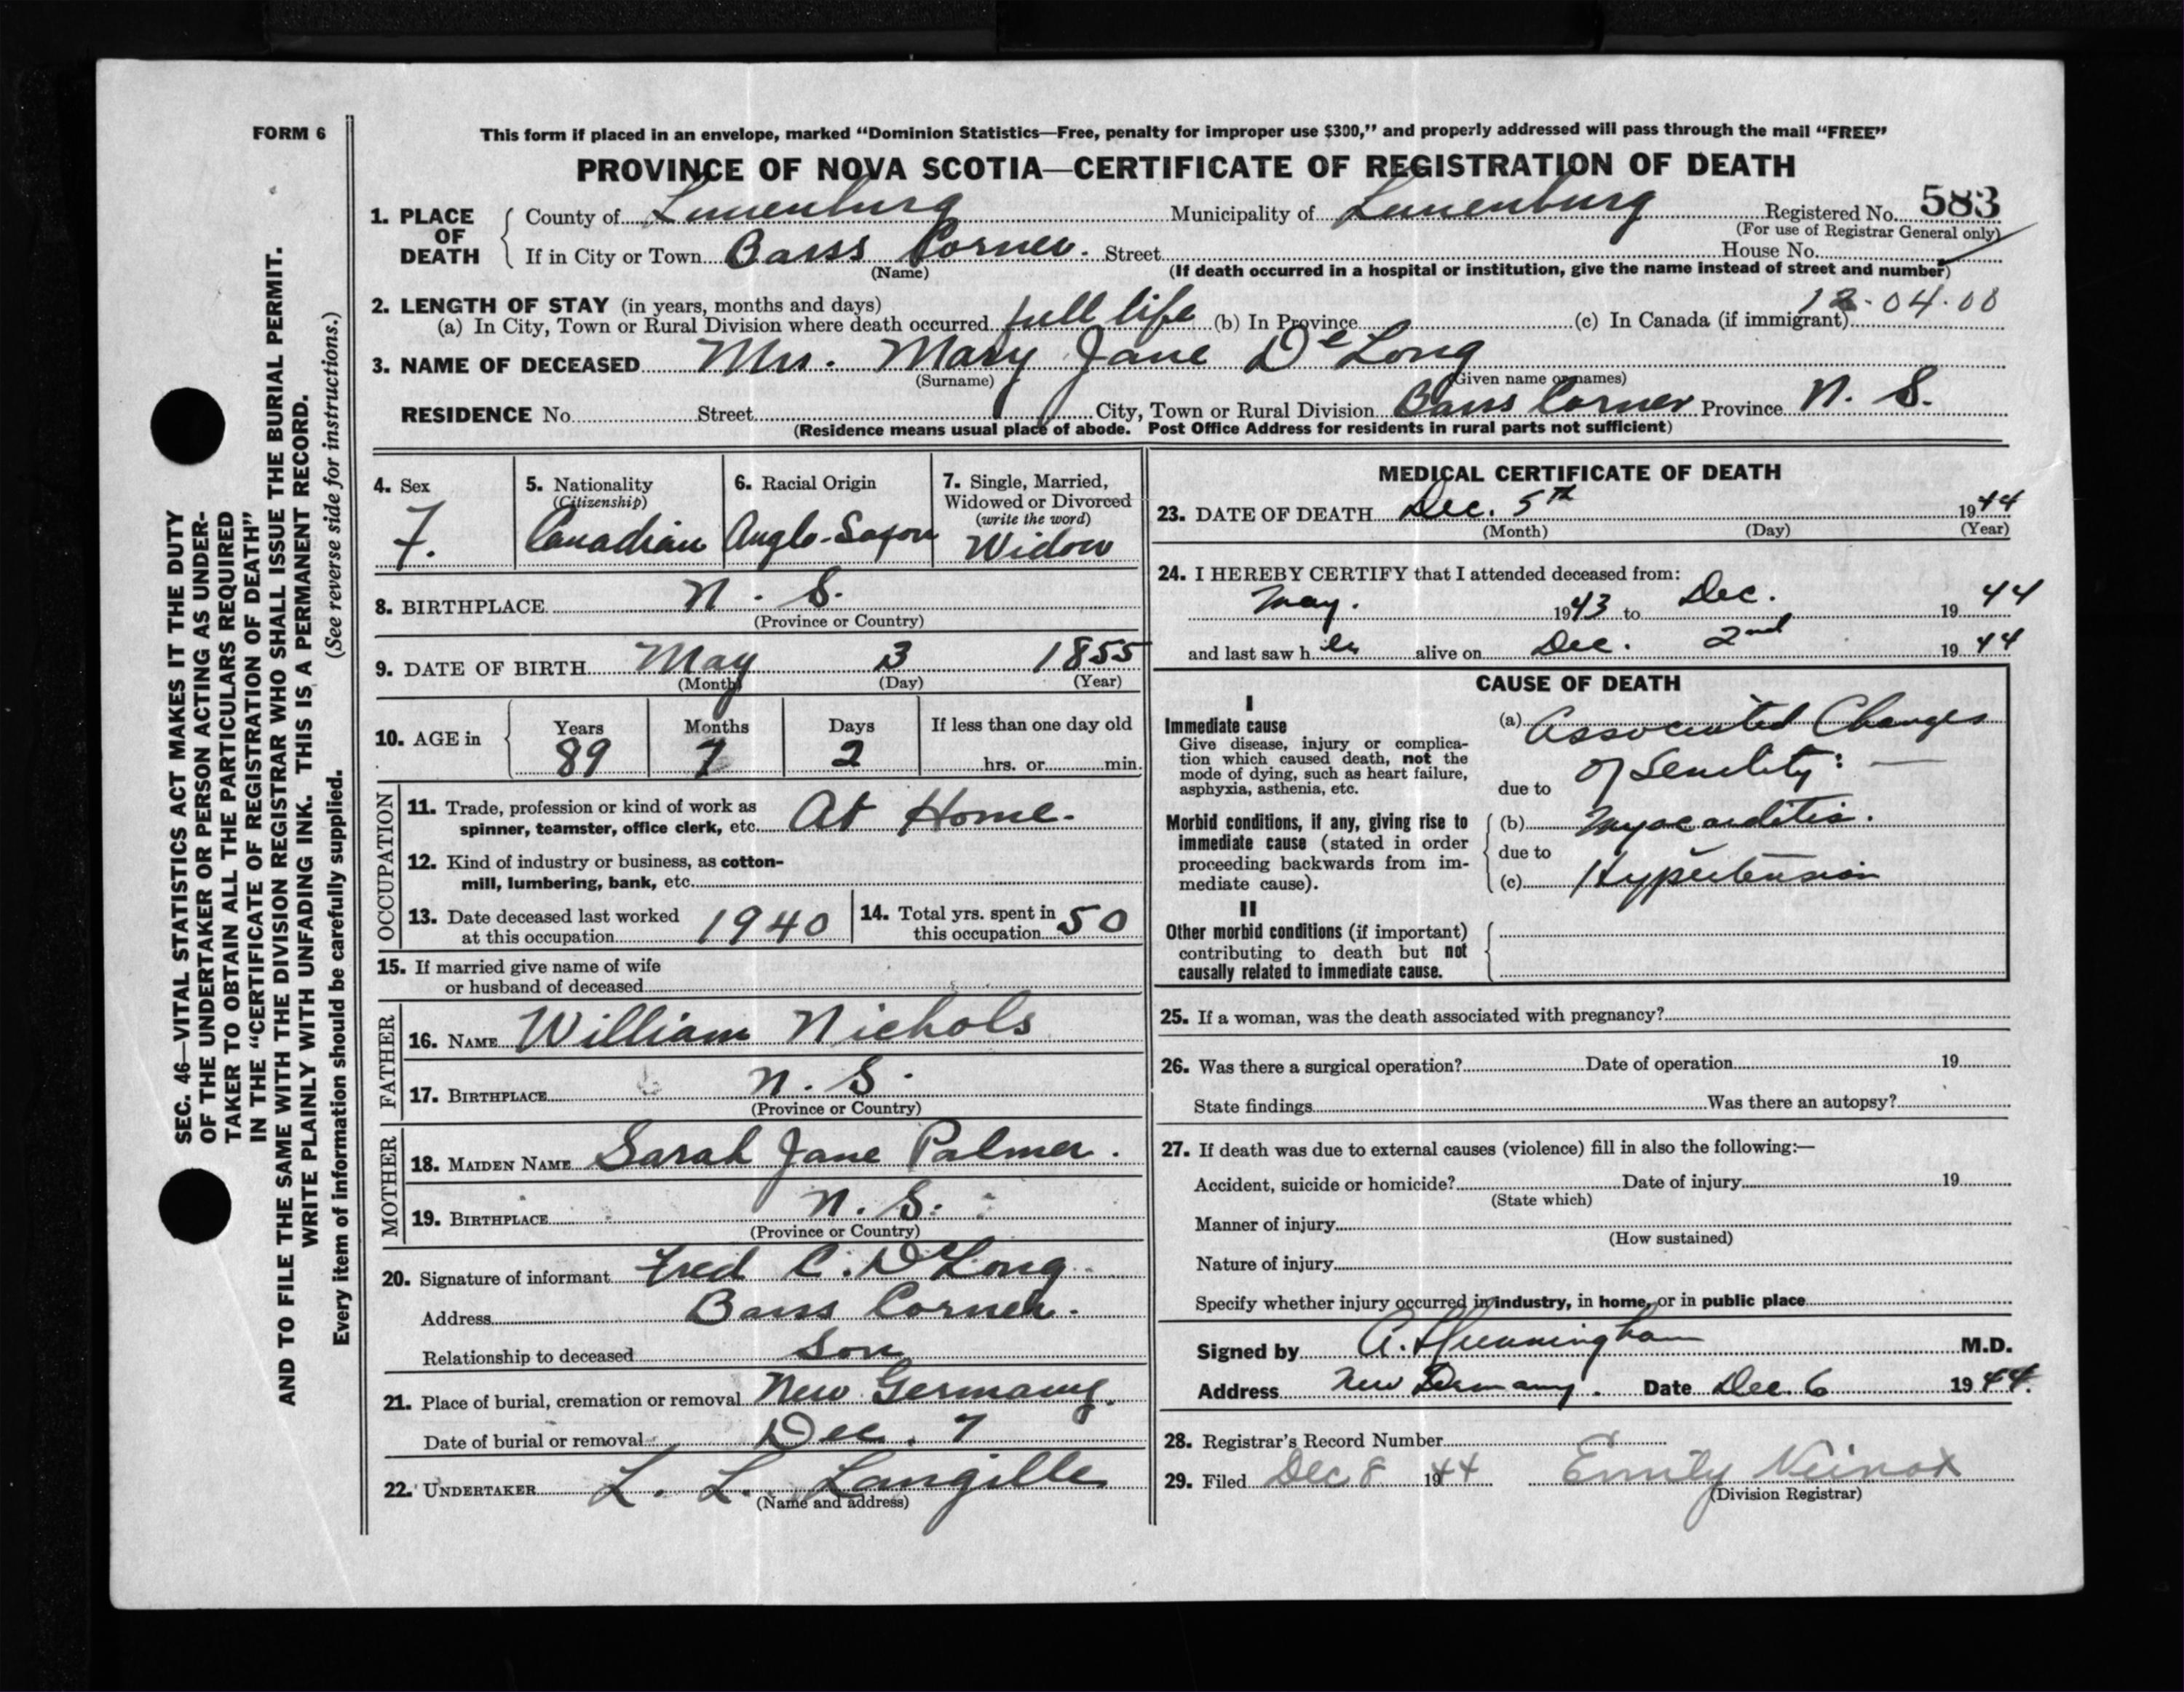 FORM 6
This form if placed in an envelope, marked “Dominion Statistics—Free, penalty for improper use $300,” and properly addressed will pass through the mail “FREE”
PROVINCE OF NOVA SCOTIA—CERTIFICATE OF REGISTRATION OF DEATH
1. PLACE OF DEATH County of Lunenburg Municipality of Lunenburg Registered No. 583
(For use of Registrar General only)
If in City or Town Barss Corner. Street House No.
(Name) (If death occurred in a hospital or institution, give the name instead of street and number)
2. LENGTH OF STAY (in years, months and days) 12-04-08
(a) In City, Town or Rural Division where death occurred full life (b) In Province (c) In Canada (if immigrant)
3. NAME OF DECEASED Mrs. Mary Jane DeLong
(Surname) (Given name or names)
RESIDENCE No. Street City, Town or Rural Division Barss Corner Province N. S.
(Residence means usual place of abode. Post Office Address for residents in rural parts not sufficient)
SEC. 46—VITAL STATISTICS ACT MAKES IT THE DUTY
OF THE UNDERTAKER OR PERSON ACTING AS UNDER-
TAKER TO OBTAIN ALL THE PARTICULARS REQUIRED
IN THE “CERTIFICATE OF REGISTRATION OF DEATH”
AND TO FILE THE SAME WITH THE DIVISION REGISTRAR WHO SHALL ISSUE THE BURIAL PERMIT.
WRITE PLAINLY WITH UNFADING INK. THIS IS A PERMANENT RECORD.
Every item of information should be carefully supplied. (See reverse side for instructions.)
4. Sex
F.
5. Nationality
(Citizenship)
Canadian
6. Racial Origin
Anglo-Saxon
7. Single, Married,
Widowed or Divorced
(write the word)
Widow
8. BIRTHPLACE N. S.
(Province or Country)
9. DATE OF BIRTH May 3 1855
(Month) (Day) (Year)
10. AGE in Years Months Days If less than one day old
89 7 2 hrs. or min.
OCCUPATION
11. Trade, profession or kind of work as
spinner, teamster, office clerk, etc. At Home.
12. Kind of industry or business, as cotton-
mill, lumbering, bank, etc.
13. Date deceased last worked
at this occupation 1940
14. Total yrs. spent in
this occupation 50
15. If married give name of wife
or husband of deceased
FATHER
16. NAME William Nichols
17. BIRTHPLACE N. S.
(Province or Country)
MOTHER
18. MAIDEN NAME Sarah Jane Palmer.
19. BIRTHPLACE N. S.
(Province or Country)
20. Signature of informant Fred C. DeLong
Address Barss Corner.
Relationship to deceased Son
21. Place of burial, cremation or removal New Germany.
Date of burial or removal Dec. 7
22. UNDERTAKER L. L. Langille
(Name and address)
MEDICAL CERTIFICATE OF DEATH
23. DATE OF DEATH Dec. 5th 1944
(Month) (Day) (Year)
24. I HEREBY CERTIFY that I attended deceased from:
May. 1943 to Dec. 1944
and last saw her alive on Dec. 2nd 1944
CAUSE OF DEATH
I
Immediate cause
Give disease, injury or complica-
tion which caused death, not the
mode of dying, such as heart failure,
asphyxia, asthenia, etc.
(a) Associated Changes
due to of Senility: —
Morbid conditions, if any, giving rise to
immediate cause (stated in order
proceeding backwards from im-
mediate cause).
(b) Myocarditis.
due to
(c) Hypertension
II
Other morbid conditions (if important)
contributing to death but not
causally related to immediate cause.
25. If a woman, was the death associated with pregnancy?
26. Was there a surgical operation? Date of operation 19
State findings Was there an autopsy?
27. If death was due to external causes (violence) fill in also the following:—
Accident, suicide or homicide? Date of injury 19
(State which)
Manner of injury
(How sustained)
Nature of injury
Specify whether injury occurred in industry, in home, or in public place
Signed by M.D.
Address New Germany. Date Dec. 6 1944.
28. Registrar’s Record Number
29. Filed Dec 8 1944 Emily
(Division Registrar)